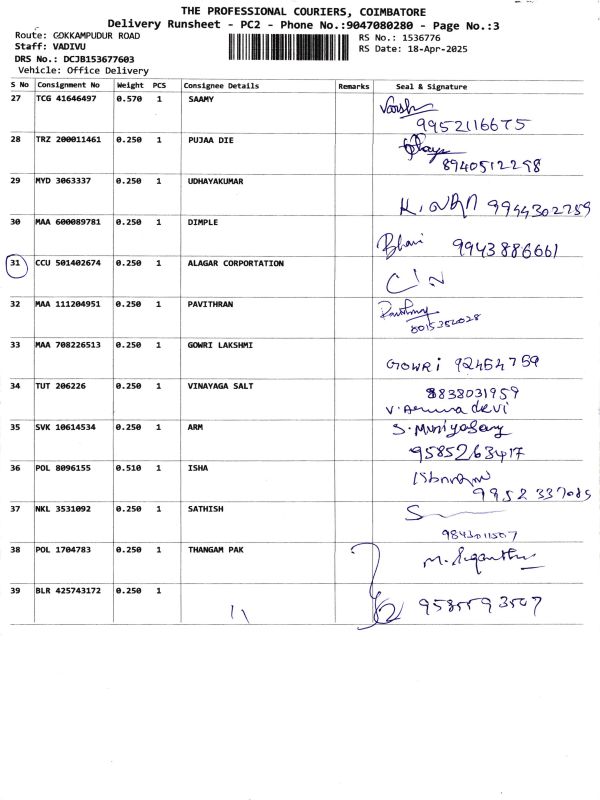 THE PROFESSIONAL COURIERS, COIMBATORE
Delivery Runsheet - PC2 - Phone No.:9047080280 - Page No.:3
Route: GOKKAMPUDUR ROAD
RS No.: 1536776
Staff: VADIVU
RS Date: 18-Apr-2025
DRS No.: DCJB153677603
Vehicle: Office Delivery
S No Consignment No Weight PCS Consignee Details Remarks Seal & Signature
27 TCG 41646497 0.570 1 SAAMY
9952116675
28 TRZ 200011461 0.250 1 PUJAA DIE
8940512298
29 MYD 3063337 0.250 1 UDHAYAKUMAR
9944302759
30 MAA 600089781 0.250 1 DIMPLE
Bhavi 9943886661
31 CCU 501402674 0.250 1 ALAGAR CORPORTATION
32 MAA 111204951 0.250 1 PAVITHRAN
33 MAA 708226513 0.250 1 GOWRI LAKSHMI
GOWRI 92454759
34 TUT 206226 0.250 1 VINAYAGA SALT
8838031959
V. Aruna devi
35 SVK 10614534 0.250 1 ARM
9585263417
36 POL 8096155 0.510 1 ISHA
9952337085
37 NKL 3531092 0.250 1 SATHISH
9843011507
38 POL 1704783 0.250 1 THANGAM PAK
39 BLR 425743172 0.250 1 11
9585593507